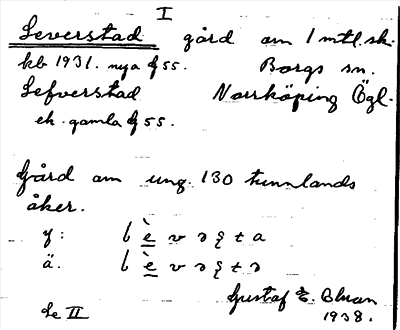 I
Leverstad gård om 1 mtl. sk.
kb 1931. nya G 55. Borgs sn.
Lefverstad Norrköping Ögl.
ek. gamla G 55.
Gård om ung. 130 tunnlands
åker.
y: l è v ə ʂ t a
ä. l è v ə ʂ t ə
Gustaf E.
1938.
Se II